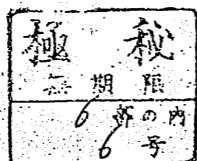 極秘
無期限
6部の内
6号